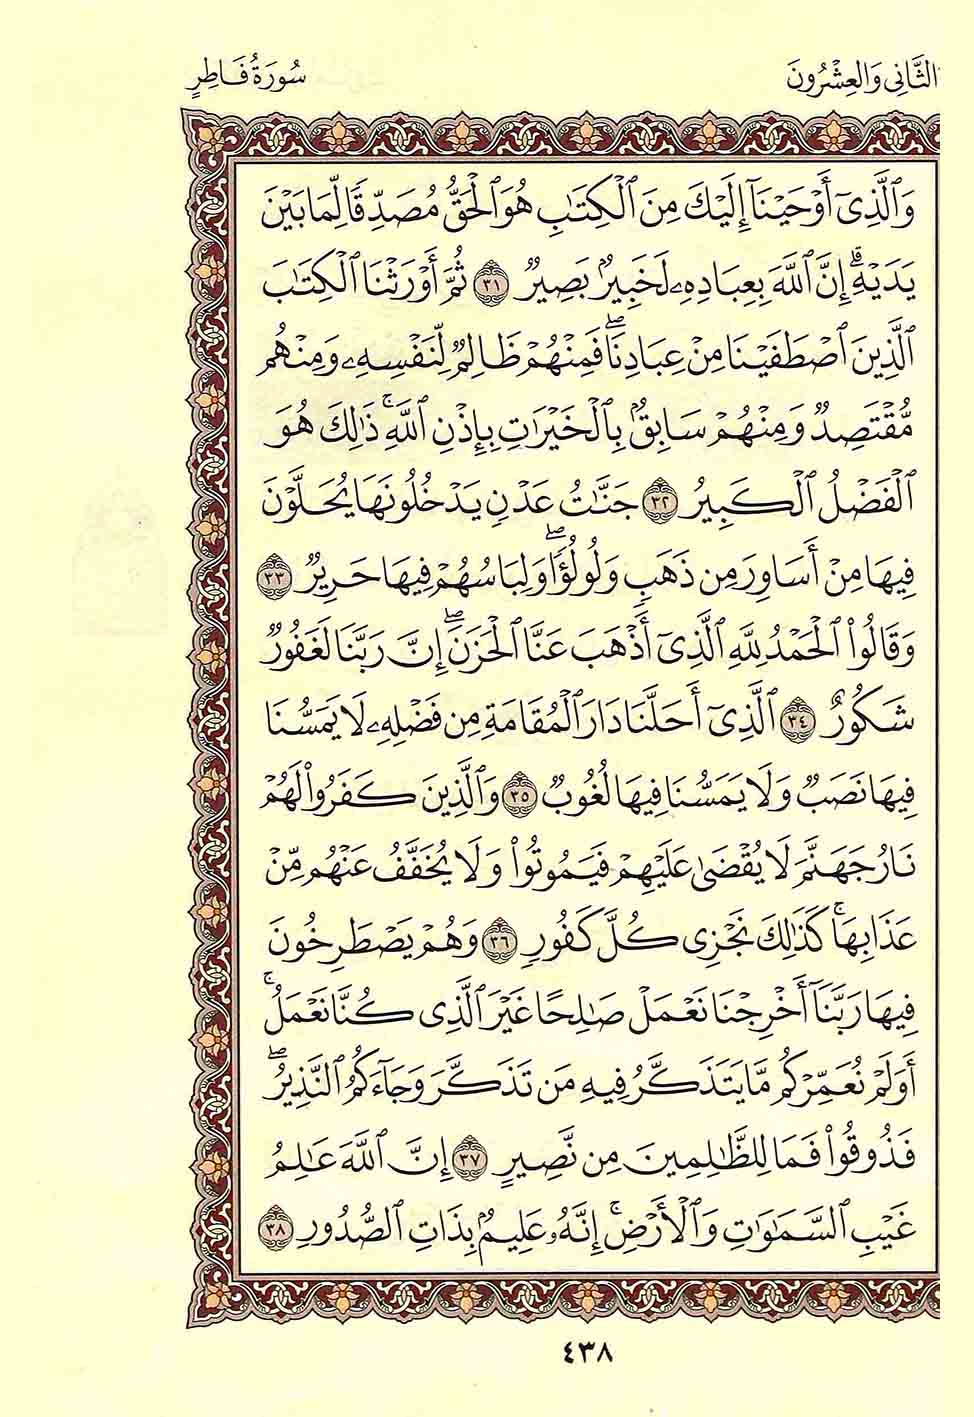 الثَّانِي وَالعِشْرُونَ
سُورَةُ فَاطِرٍ
وَٱلَّذِىٓ أَوْحَيْنَآ إِلَيْكَ مِنَ ٱلْكِتَٰبِ هُوَ ٱلْحَقُّ مُصَدِّقًا لِّمَا بَيْنَ
يَدَيْهِۗ إِنَّ ٱللَّهَ بِعِبَادِهِۦ لَخَبِيرٌۢ بَصِيرٌ ٣١ ثُمَّ أَوْرَثْنَا ٱلْكِتَٰبَ
ٱلَّذِينَ ٱصْطَفَيْنَا مِنْ عِبَادِنَاۖ فَمِنْهُمْ ظَالِمٌ لِّنَفْسِهِۦ وَمِنْهُم
مُّقْتَصِدٌ وَمِنْهُمْ سَابِقٌۢ بِٱلْخَيْرَٰتِ بِإِذْنِ ٱللَّهِۚ ذَٰلِكَ هُوَ
ٱلْفَضْلُ ٱلْكَبِيرُ ٣٢ جَنَّٰتُ عَدْنٍ يَدْخُلُونَهَا يُحَلَّوْنَ
فِيهَا مِنْ أَسَاوِرَ مِن ذَهَبٍ وَلُؤْلُؤًاۖ وَلِبَاسُهُمْ فِيهَا حَرِيرٌ ٣٣
وَقَالُوا۟ ٱلْحَمْدُ لِلَّهِ ٱلَّذِىٓ أَذْهَبَ عَنَّا ٱلْحَزَنَۖ إِنَّ رَبَّنَا لَغَفُورٌ
شَكُورٌ ٣٤ ٱلَّذِىٓ أَحَلَّنَا دَارَ ٱلْمُقَامَةِ مِن فَضْلِهِۦ لَا يَمَسُّنَا
فِيهَا نَصَبٌ وَلَا يَمَسُّنَا فِيهَا لُغُوبٌ ٣٥ وَٱلَّذِينَ كَفَرُوا۟ لَهُمْ
نَارُ جَهَنَّمَ لَا يُقْضَىٰ عَلَيْهِمْ فَيَمُوتُوا۟ وَلَا يُخَفَّفُ عَنْهُم مِّنْ
عَذَابِهَاۚ كَذَٰلِكَ نَجْزِى كُلَّ كَفُورٍ ٣٦ وَهُمْ يَصْطَرِخُونَ
فِيهَا رَبَّنَآ أَخْرِجْنَا نَعْمَلْ صَٰلِحًا غَيْرَ ٱلَّذِى كُنَّا نَعْمَلُۚ
أَوَلَمْ نُعَمِّرْكُم مَّا يَتَذَكَّرُ فِيهِ مَن تَذَكَّرَ وَجَآءَكُمُ ٱلنَّذِيرُۖ
فَذُوقُوا۟ فَمَا لِلظَّٰلِمِينَ مِن نَّصِيرٍ ٣٧ إِنَّ ٱللَّهَ عَٰلِمُ
غَيْبِ ٱلسَّمَٰوَٰتِ وَٱلْأَرْضِۚ إِنَّهُۥ عَلِيمٌۢ بِذَاتِ ٱلصُّدُورِ ٣٨
٤٣٨